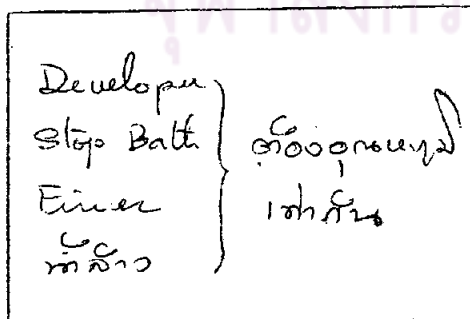 Developer
Stop Bath
Fixer
น้ำล้าง
ต้องอุณหภูมิ
เท่ากัน